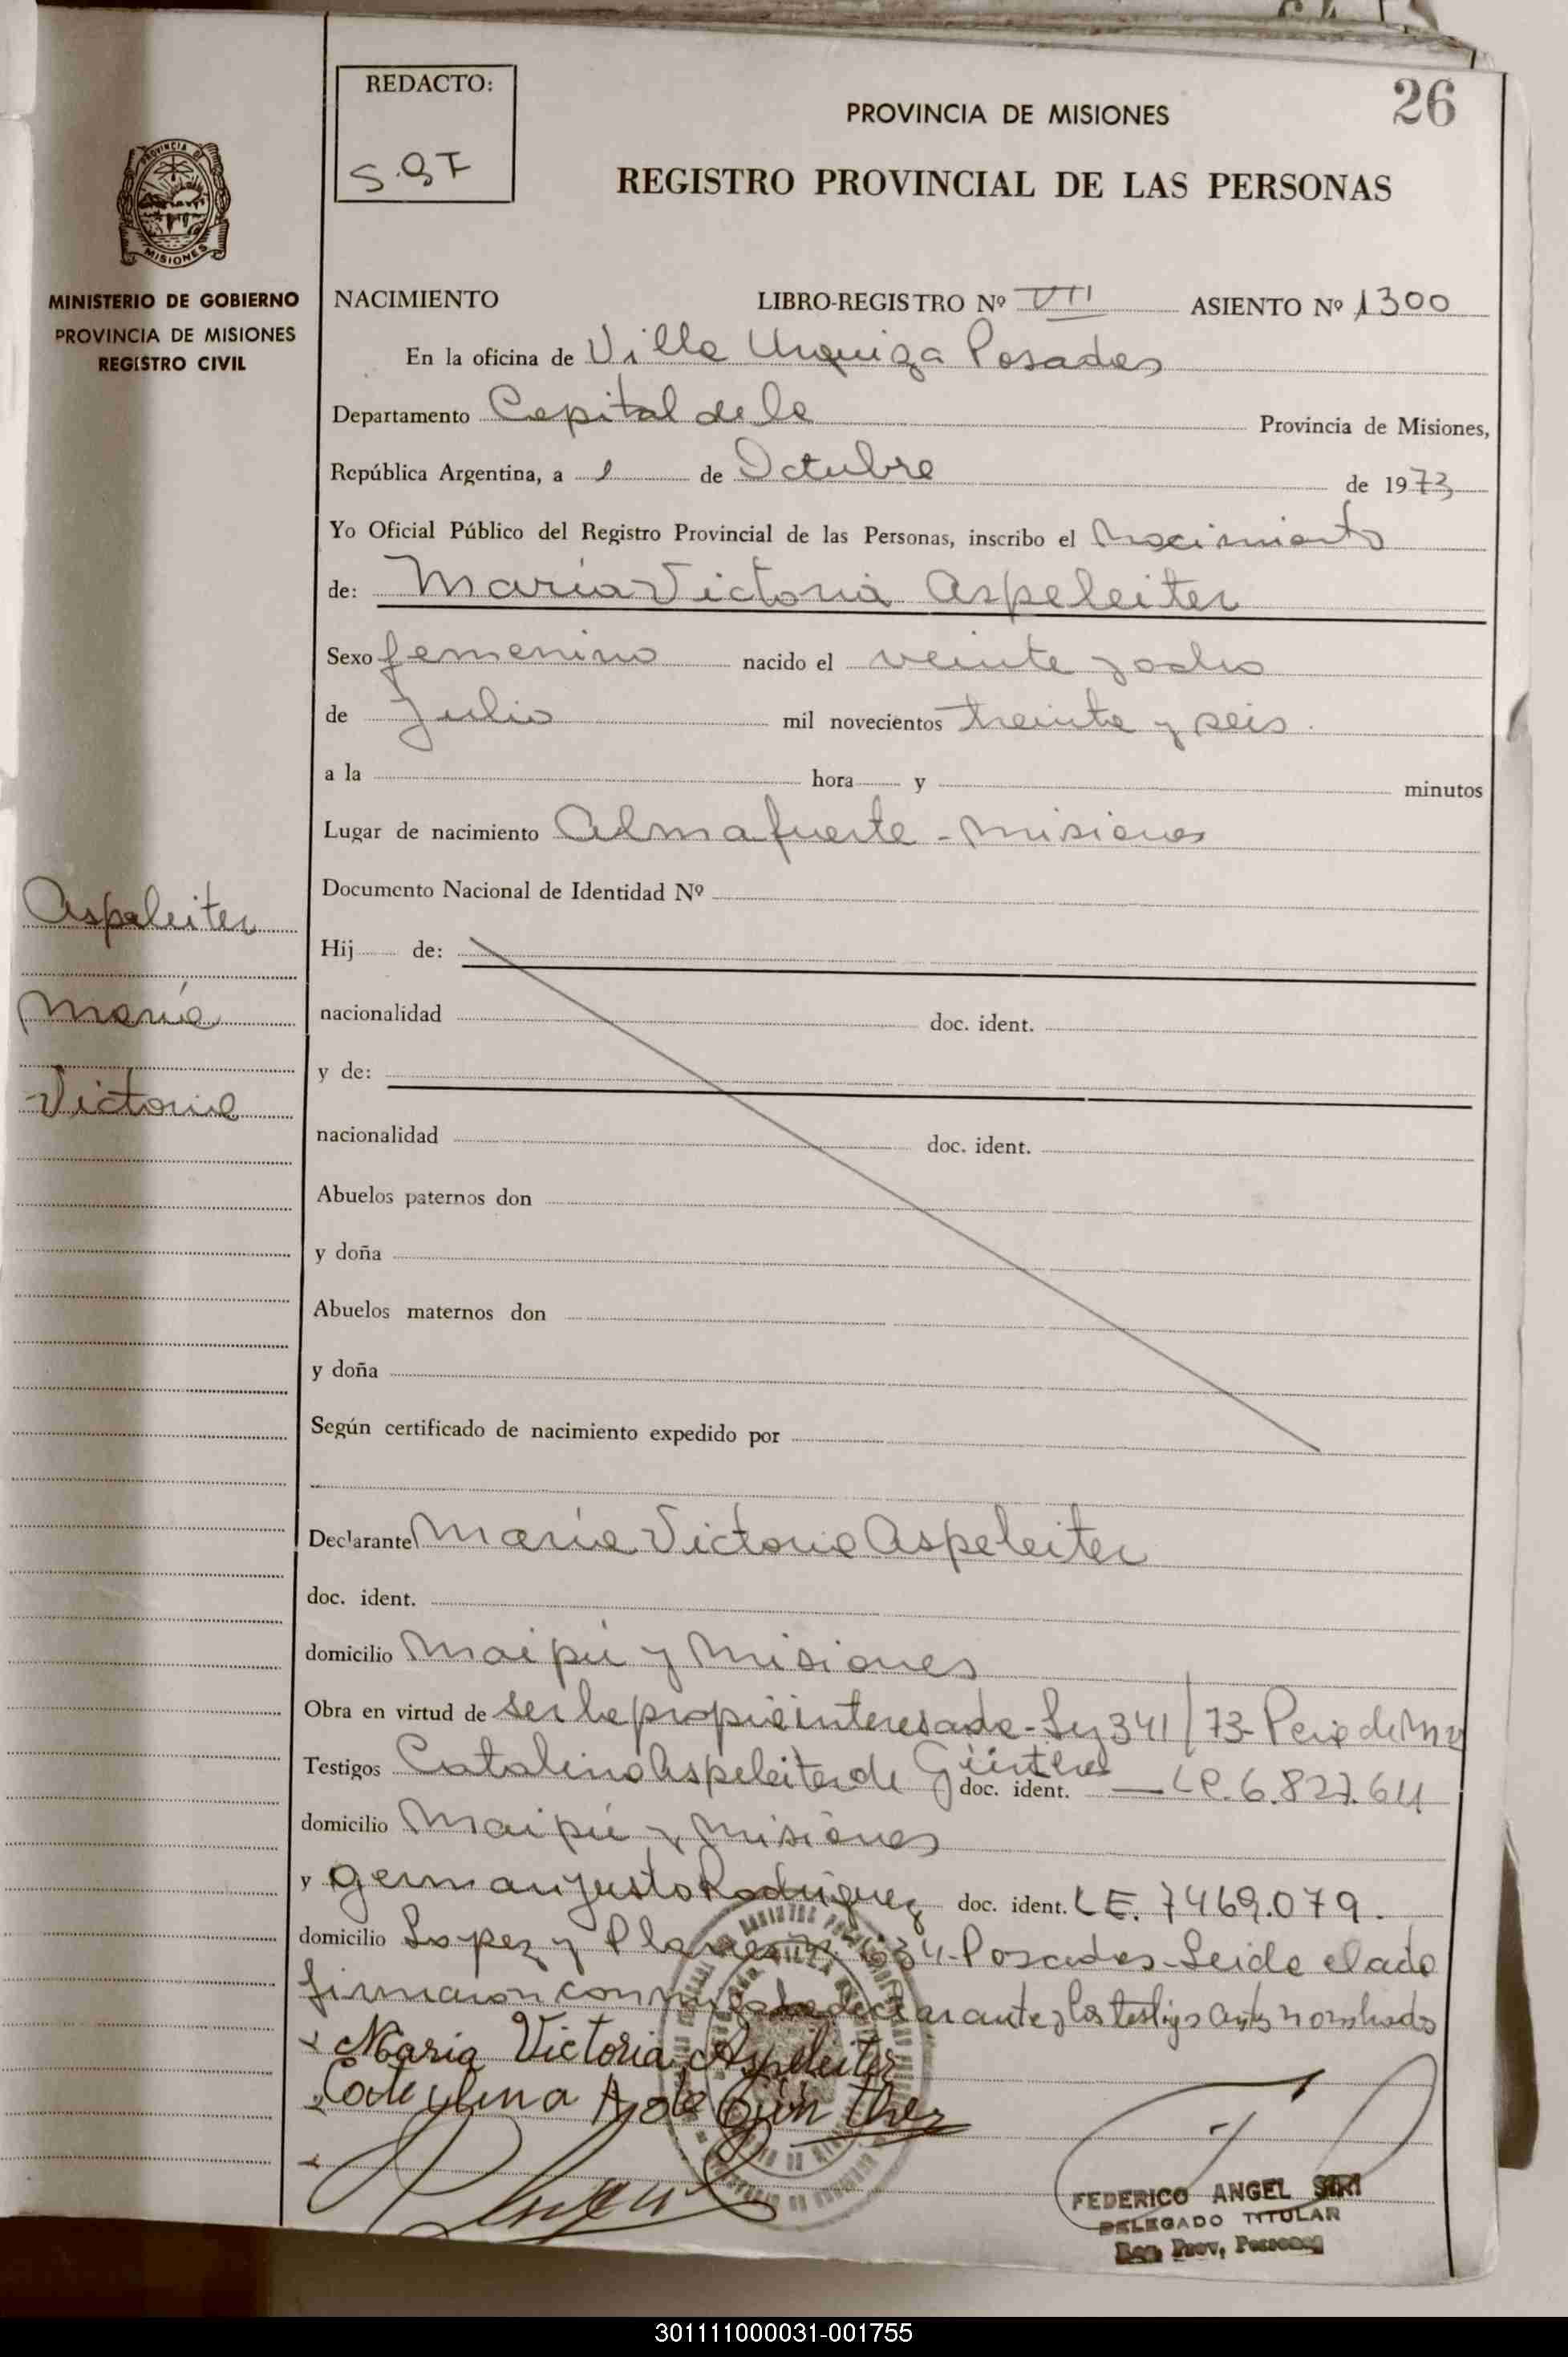 26
REDACTO:
PROVINCIA DE MISIONES
REGISTRO PROVINCIAL DE LAS PERSONAS
PROVINCIA DE
MISIONES
MINISTERIO DE GOBIERNO
PROVINCIA DE MISIONES
REGISTRO CIVIL
NACIMIENTO LIBRO-REGISTRO Nº VII ASIENTO Nº 1300
En la oficina de Villa Urquiza Posadas
Departamento Capital de la Provincia de Misiones,
República Argentina, a 1 de Octubre de 1973
Yo Oficial Público del Registro Provincial de las Personas, inscribo el Nacimiento
de: María Victoria Aspeleiter
Sexo femenino nacido el veinte y ocho
de Julio mil novecientos treinta y seis.
a la hora y minutos
Lugar de nacimiento Almafuerte - Misiones
Documento Nacional de Identidad Nº
Aspeleiter
Hij de:
María
nacionalidad doc. ident.
y de:
Victoria
nacionalidad doc. ident.
Abuelos paternos don
y doña
Abuelos maternos don
y doña
Según certificado de nacimiento expedido por
Declarante María Victoria Aspeleiter
doc. ident.
domicilio Maipú y Misiones
Obra en virtud de ser la propia interesada - Ley 341/73 - Pcia de Mnes
Testigos Catalina Aspeleiter de Günther doc. ident. — LC. 6.827.611
domicilio Maipú y Misiones
y German Justo Rodriguez doc. ident. LE. 7469.079.
domicilio Lopez y Planes Nº 634 - Posadas - Leida el acta
firmaron conmigo la declarante y los testigos antes nombrados
María Victoria Aspeleiter
Catalina A de Günther
FEDERICO ANGEL SIRI
DELEGADO TITULAR
Reg. Prov. Personas
301111000031-001755